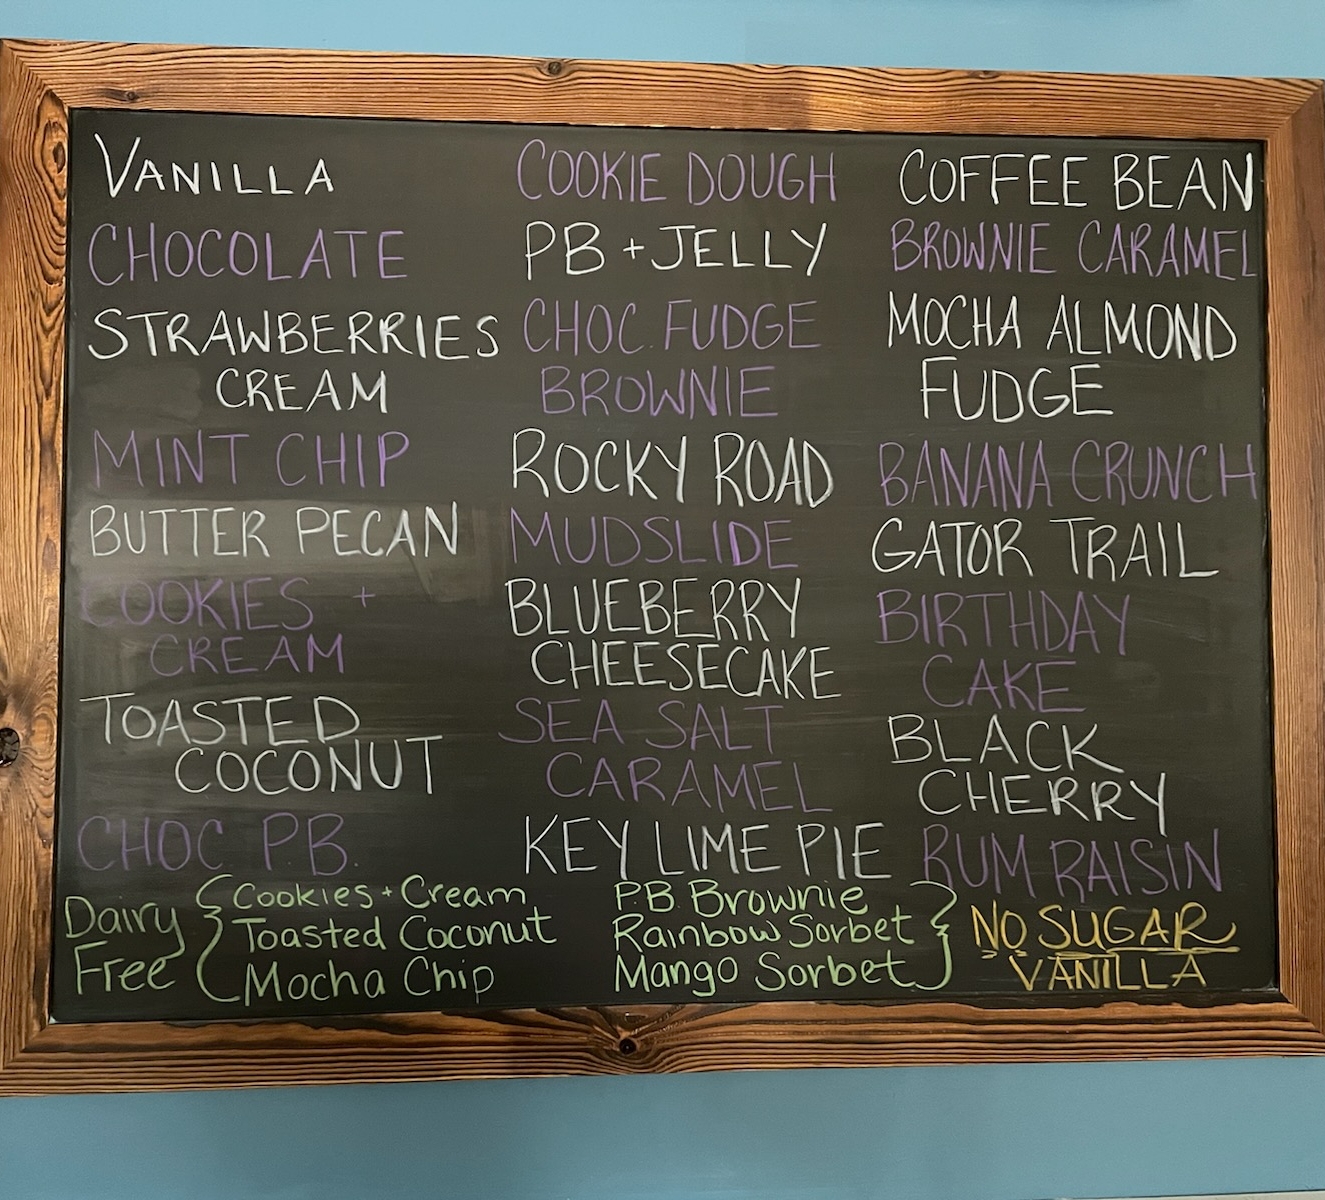 VANILLA
CHOCOLATE
STRAWBERRIES
CREAM
MINT CHIP
BUTTER PECAN
COOKIES +
CREAM
TOASTED
COCONUT
CHOC P.B.
COOKIE DOUGH
PB + JELLY
CHOC. FUDGE
BROWNIE
ROCKY ROAD
MUDSLIDE
BLUEBERRY
CHEESECAKE
SEA SALT
CARAMEL
KEY LIME PIE
COFFEE BEAN
BROWNIE CARAMEL
MOCHA ALMOND
FUDGE
BANANA CRUNCH
GATOR TRAIL
BIRTHDAY
CAKE
BLACK
CHERRY
RUM RAISIN
Dairy
Free
Cookies + Cream
Toasted Coconut
Mocha Chip
P.B. Brownie
Rainbow Sorbet
Mango Sorbet
NO SUGAR
VANILLA